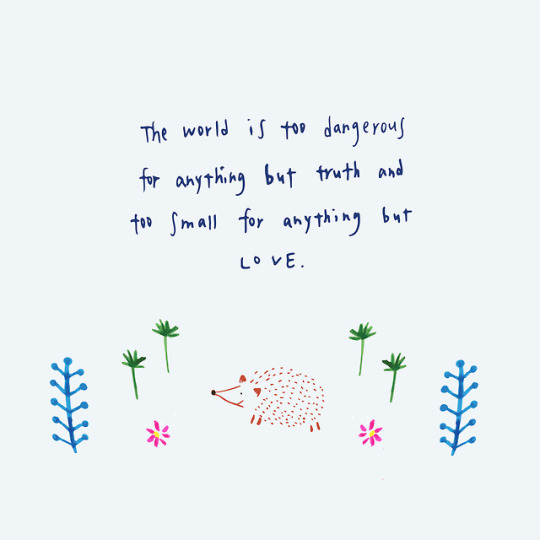 The world is too dangerous
for anything but truth and
too small for anything but
LOVE.